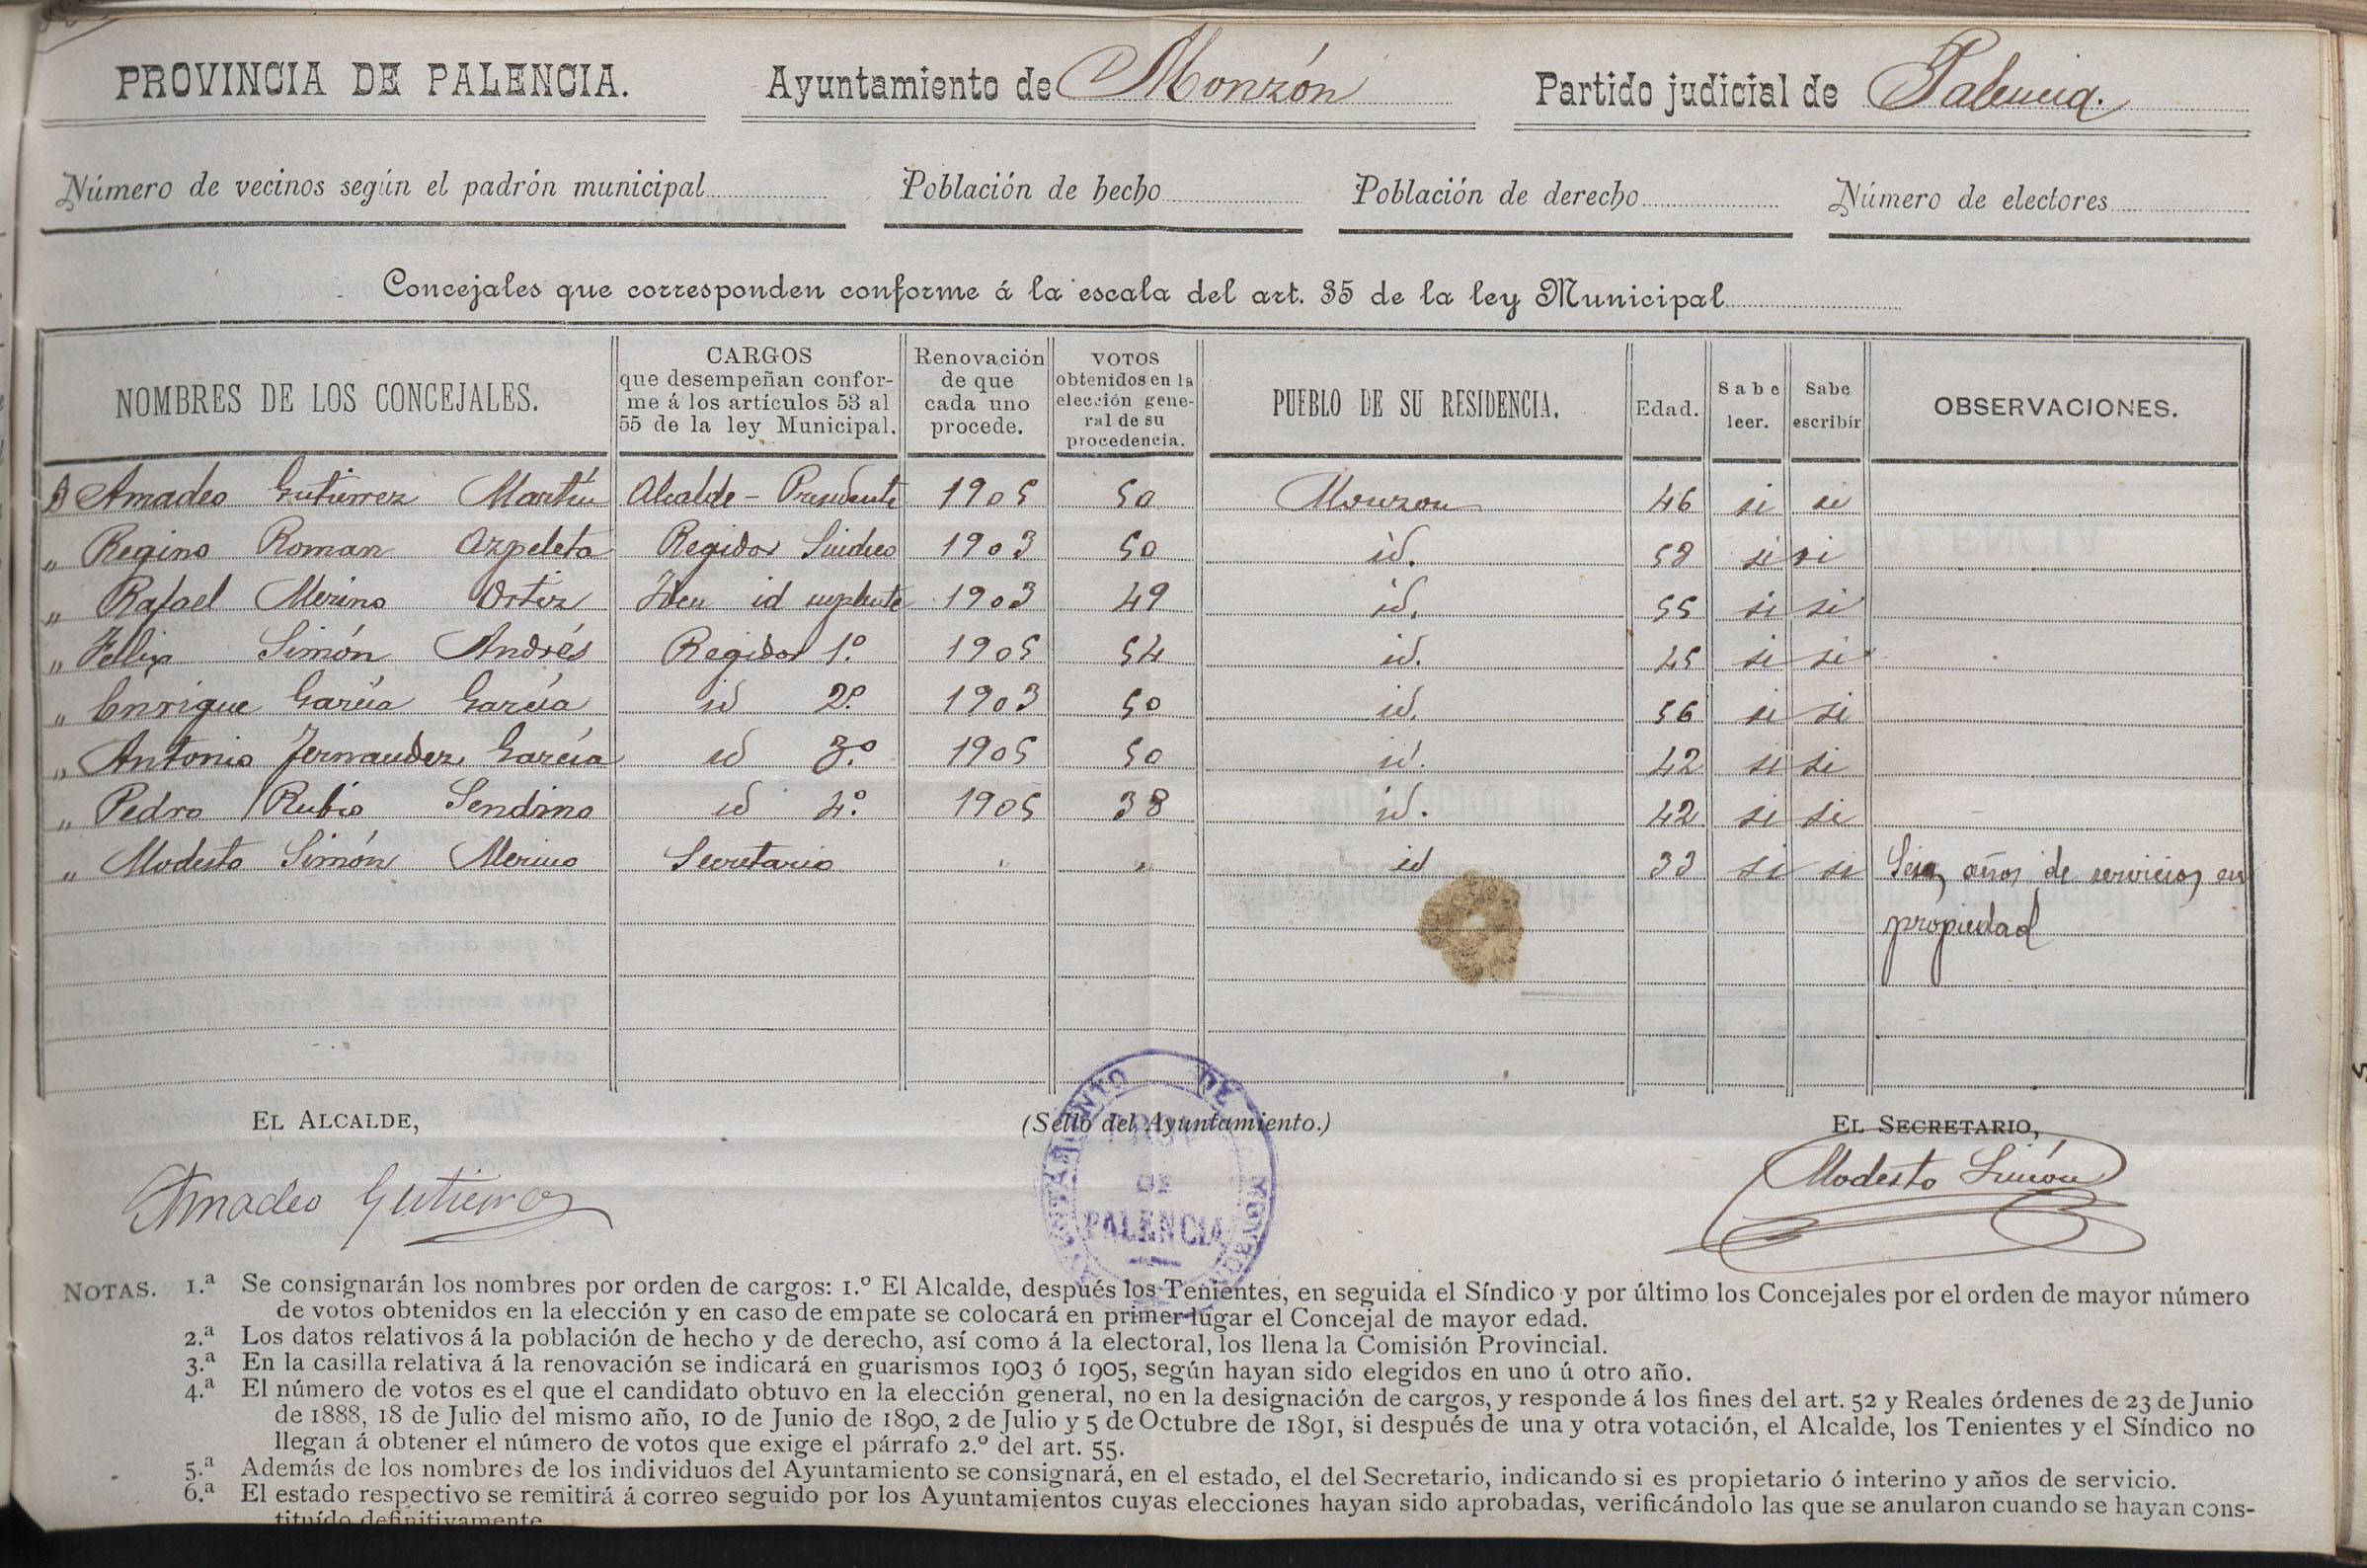 PROVINCIA DE PALENCIA. Ayuntamiento de Monzón Partido judicial de Palencia.
Número de vecinos según el padrón municipal Población de hecho Población de derecho Número de electores
Concejales que corresponden conforme á la escala del art. 35 de la ley Municipal
NOMBRES DE LOS CONCEJALES.
CARGOS
que desempeñan confor-
me á los artículos 53 al
55 de la ley Municipal.
Renovación
de que
cada uno
procede.
VOTOS
obtenidos en la
elección gene-
ral de su
procedencia.
PUEBLO DE SU RESIDENCIA.
Edad.
Sabe
leer.
Sabe
escribir
OBSERVACIONES.
D Amadeo Gutierrez Martín Alcalde - Presidente 1905 50 Monzon 46 si si
" Regino Roman Azpeleta Regidor Sindico 1903 50 id. 58 si si
" Rafael Merino Ortiz Iden id suplente 1903 49 id. 55 si si
" Felix Simón Andrés Regidor 1.º 1905 54 id. 45 si si
" Enrique García García id 2.º 1903 50 id. 56 si si
" Antonio Fernandez García id 3.º 1905 50 id. 42 si si
" Pedro Rubio Sendino id 4.º 1905 38 id. 42 si si
" Modesto Simón Merino Secretario " " id 33 si si Seis años de servicios en
propiedad
EL ALCALDE, (Sello del Ayuntamiento.) EL SECRETARIO,
Amadeo Gutierrez
Modesto Simón
AYUNTAMIENTO DE MONZON
PROV.
DE
PALENCIA
NOTAS. 1.ª Se consignarán los nombres por orden de cargos: 1.º El Alcalde, después los Tenientes, en seguida el Síndico y por último los Concejales por el orden de mayor número
de votos obtenidos en la elección y en caso de empate se colocará en primer lugar el Concejal de mayor edad.
2.ª Los datos relativos á la población de hecho y de derecho, así como á la electoral, los llena la Comisión Provincial.
3.ª En la casilla relativa á la renovación se indicará en guarismos 1903 ó 1905, según hayan sido elegidos en uno ú otro año.
4.ª El número de votos es el que el candidato obtuvo en la elección general, no en la designación de cargos, y responde á los fines del art. 52 y Reales órdenes de 23 de Junio
de 1888, 18 de Julio del mismo año, 10 de Junio de 1890, 2 de Julio y 5 de Octubre de 1891, si después de una y otra votación, el Alcalde, los Tenientes y el Síndico no
llegan á obtener el número de votos que exige el párrafo 2.º del art. 55.
5.ª Además de los nombres de los individuos del Ayuntamiento se consignará, en el estado, el del Secretario, indicando si es propietario ó interino y años de servicio.
6.ª El estado respectivo se remitirá á correo seguido por los Ayuntamientos cuyas elecciones hayan sido aprobadas, verificándolo las que se anularon cuando se hayan cons-
tituído definitivamente